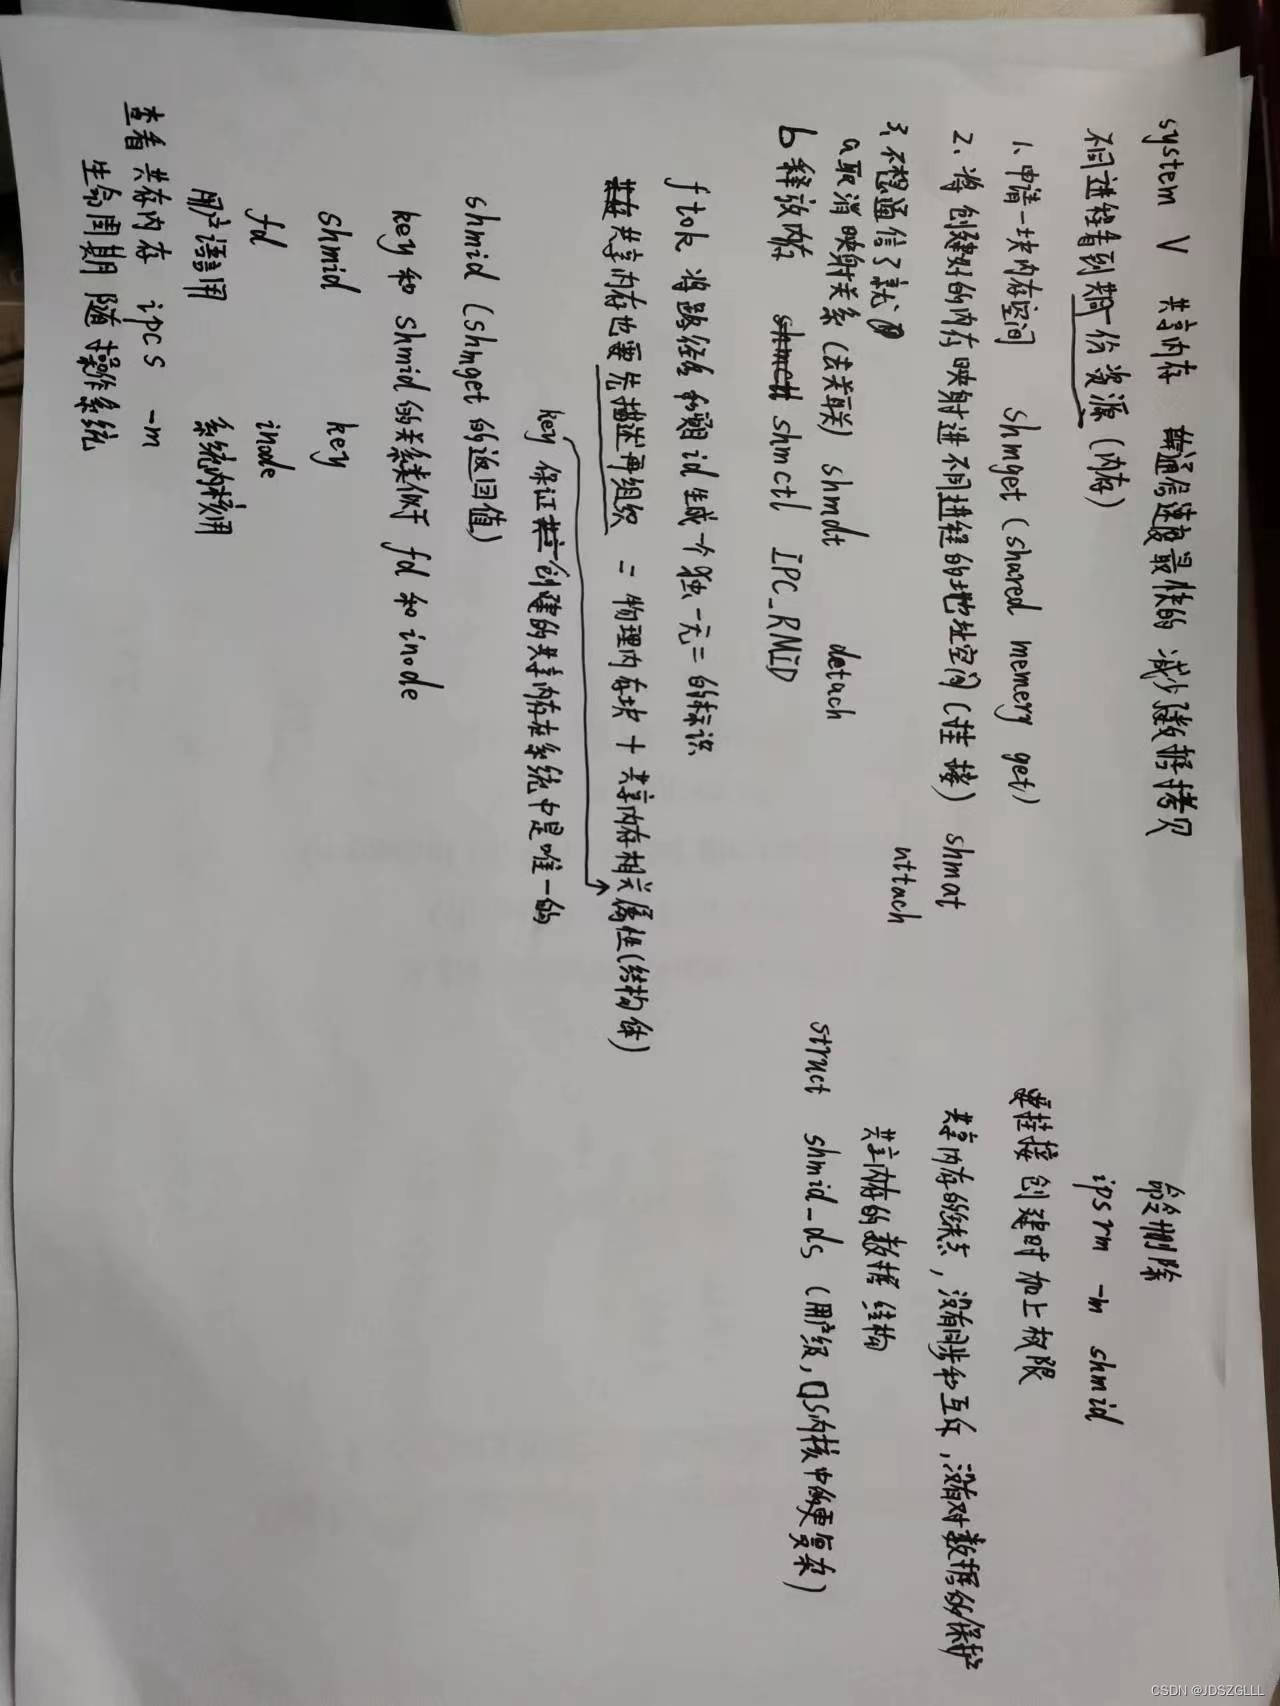 system V 共享内存 通信速度最快的 减少数据拷贝
不同进程看到同一份资源(内存)
1、申请一块内存空间 shmget (shared memery get)
2、将创建好的内存映射进不同进程的地址空间(挂接) shmat
attach
3、不想通信了就
a取消映射关系(去关联) shmdt detach
b释放内存 shmctl IPC_RMID
ftok 将路径和项目id生成一个独一无二的标识
共享内存也要先描述再组织 = 物理内存块 + 共享内存相关属性(结构体)
key 保证创建的共享内存在系统中是唯一的
shmid (shmget的返回值)
key和shmid的关系类似于 fd和inode
shmid key
fd inode
用户语言用 系统内核用
查看共存内存 ipcs -m
生命周期随操作系统
命令删除
ipsrm -m shmid
要挂接创建时加上权限
共享内存的缺点,没有同步和互斥,没有对数据的保护
共享内存的数据结构
struct shmid_ds (用户级,OS内核中的更复杂)
CSDN @JDSZGLLL